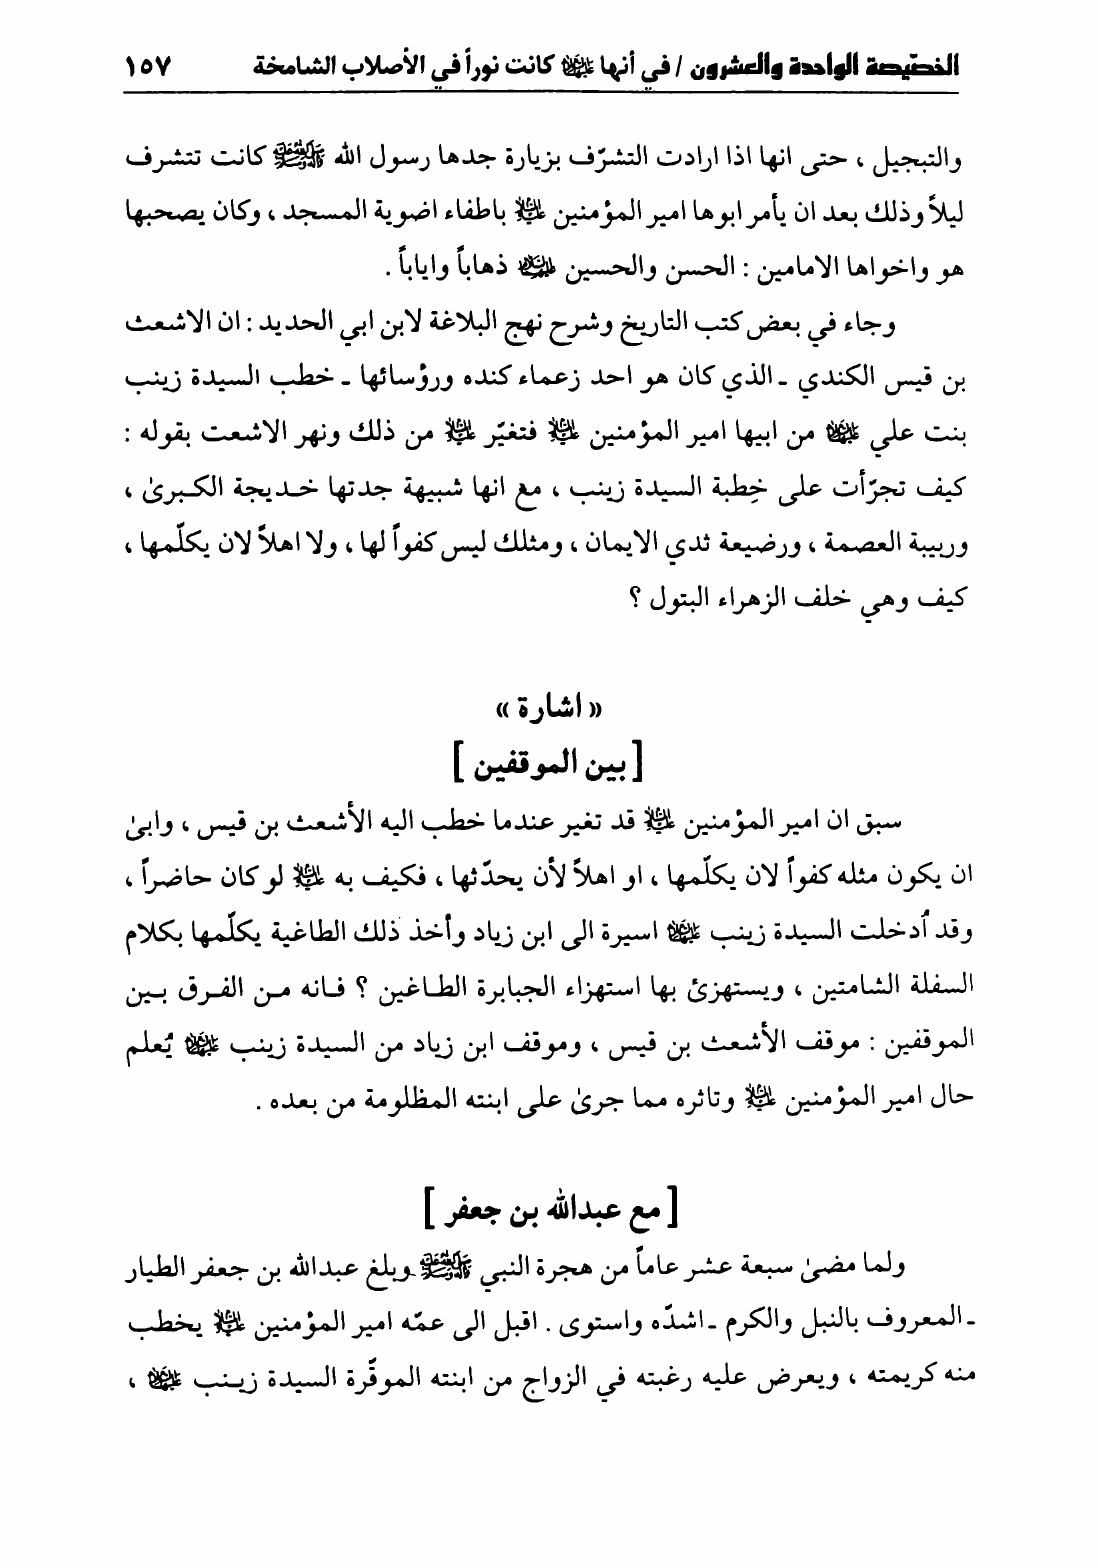 الخصّيصة الواحدة والعشرون / في أنها عليها السلام كانت نوراً في الأصلاب الشامخة ١٥٧
والتبجيل ، حتى انها اذا ارادت التشرّف بزيارة جدها رسول الله صلى الله عليه وآله وسلم كانت تتشرف
ليلاً وذلك بعد ان يأمر ابوها امير المؤمنين عليه السلام باطفاء اضوية المسجد ، وكان يصحبها
هو واخواها الامامين : الحسن والحسين عليهما السلام ذهاباً واياباً .
وجاء في بعض كتب التاريخ وشرح نهج البلاغة لابن ابي الحديد : ان الاشعث
بن قيس الكندي ـ الذي كان هو احد زعماء كنده ورؤسائها ـ خطب السيدة زينب
بنت علي عليها السلام من ابيها امير المؤمنين عليه السلام فتغيّر عليه السلام من ذلك ونهر الاشعث بقوله :
كيف تجرّأت على خِطبة السيدة زينب ، مع انها شبيهة جدتها خديجة الكبرىٰ ،
وربيبة العصمة ، ورضيعة ثدي الايمان ، ومثلك ليس كفواً لها ، ولا اهلاً لان يكلّمها ،
كيف وهي خلف الزهراء البتول ؟
« اشارة »
[ بين الموقفين ]
سبق ان امير المؤمنين عليه السلام قد تغير عندما خطب اليه الأشعث بن قيس ، وابىٰ
ان يكون مثله كفواً لان يكلّمها ، او اهلاً لأن يحدّثها ، فكيف به عليه السلام لو كان حاضراً ،
وقد اُدخلت السيدة زينب عليها السلام اسيرة الى ابن زياد وأخذ ذلك الطاغية يكلّمها بكلام
السفلة الشامتين ، ويستهزئ بها استهزاء الجبابرة الطاغين ؟ فانه من الفرق بين
الموقفين : موقف الأشعث بن قيس ، وموقف ابن زياد من السيدة زينب عليها السلام يُعلم
حال امير المؤمنين عليه السلام وتاثره مما جرىٰ على ابنته المظلومة من بعده .
[ مع عبدالله بن جعفر ]
ولما مضىٰ سبعة عشر عاماً من هجرة النبي صلى الله عليه وآله وسلم وبلغ عبدالله بن جعفر الطيار
ـ المعروف بالنبل والكرم ـ اشدّه واستوى . اقبل الى عمّه امير المؤمنين عليه السلام يخطب
منه كريمته ، ويعرض عليه رغبته في الزواج من ابنته الموقّرة السيدة زينب عليها السلام ،